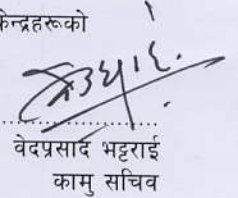 केन्द्रहरूको
वेदप्रसाद भट्टराई
कामु सचिव